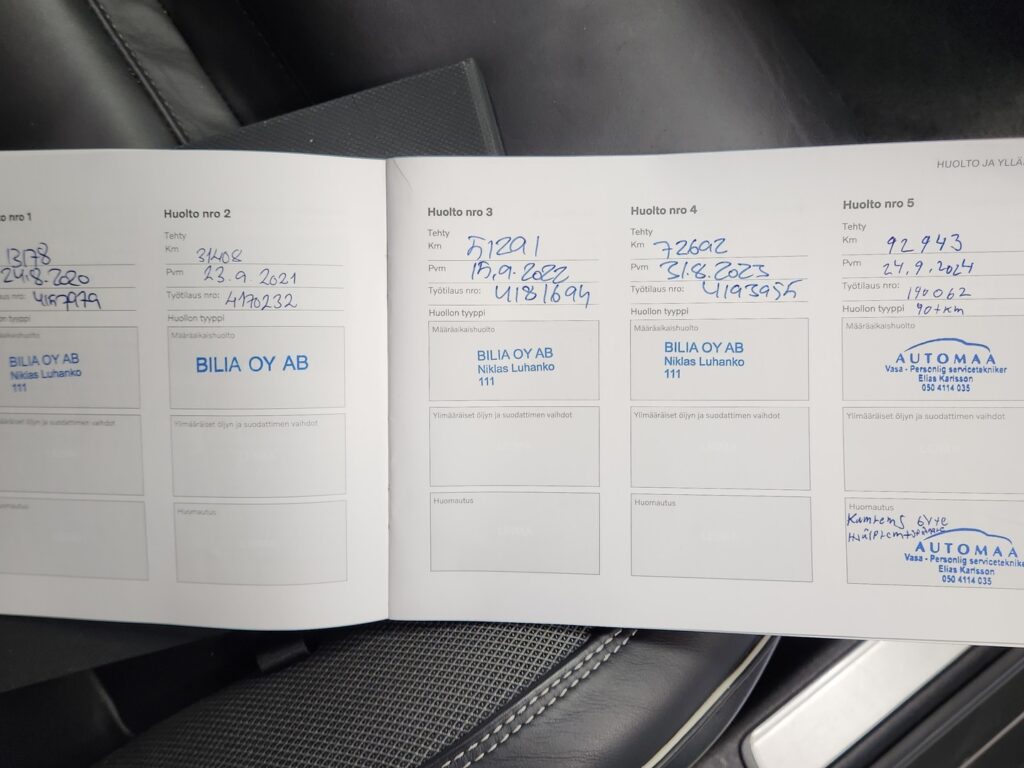 HUOLTO JA YLLÄ
to nro 1
13178
24.8.2020
laus nro: 4157979
Määräaikaishuolto
BILIA OY AB
Niklas Luhanko
111
Ylimääräiset öljyn ja suodattimen vaihdot
Huomautus
Huolto nro 2
Tehty
Km 31408
Pvm 23.9.2021
Työtilaus nro: 4170232
Huollon tyyppi
Määräaikaishuolto
BILIA OY AB
Ylimääräiset öljyn ja suodattimen vaihdot
Huomautus
Huolto nro 3
Tehty
Km 51291
Pvm 15.9.2022
Työtilaus nro: 4181694
Huollon tyyppi
Määräaikaishuolto
BILIA OY AB
Niklas Luhanko
111
Ylimääräiset öljyn ja suodattimen vaihdot
Huomautus
Huolto nro 4
Tehty
Km 72692
Pvm 31.8.2023
Työtilaus nro: 4193955
Huollon tyyppi
Määräaikaishuolto
BILIA OY AB
Niklas Luhanko
111
Ylimääräiset öljyn ja suodattimen vaihdot
Huomautus
Huolto nro 5
Tehty
Km 92943
Pvm 24.9.2024
Työtilaus nro: 190062
Huollon tyyppi 90tkm
Määräaikaishuolto
AUTOMAA
Vasa - Personlig servicetekniker
Elias Karlsson
050 4114 035
Ylimääräiset öljyn ja suodattimen vaihdot
Huomautus
Kamrems byte
AUTOMAA
Vasa - Personlig servicetekniker
Elias Karlsson
050 4114 035